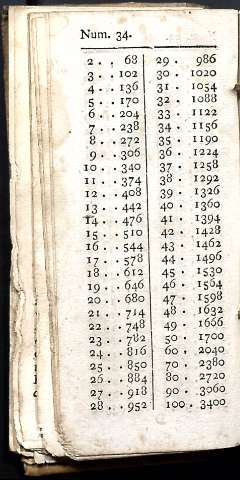 Num. 34.
2 . . 68
3 . . 102
4 . . 136
5 . . 170
6 . . 204
7 . . 238
8 . . 272
9 . . 306
10 . . 340
11 . . 374
12 . . 408
13 . . 442
14 . . 476
15 . . 510
16 . . 544
17 . . 578
18 . . 612
19 . . 646
20 . . 680
21 . . 714
22 . . 748
23 . . 782
24 . . 816
25 . . 850
26 . . 884
27 . . 918
28 . . 952
29 . 986
30 . 1020
31 . 1054
32 . 1088
33 . 1122
34 . 1156
35 . 1190
36 . 1224
37 . 1258
38 . 1292
39 . 1326
40 . 1360
41 . 1394
42 . 1428
43 . 1462
44 . 1496
45 . 1530
46 . 1564
47 . 1598
48 . 1632
49 . 1666
50 . 1700
60 . 2040
70 . 2380
80 . 2720
90 . 3060
100 . 3400